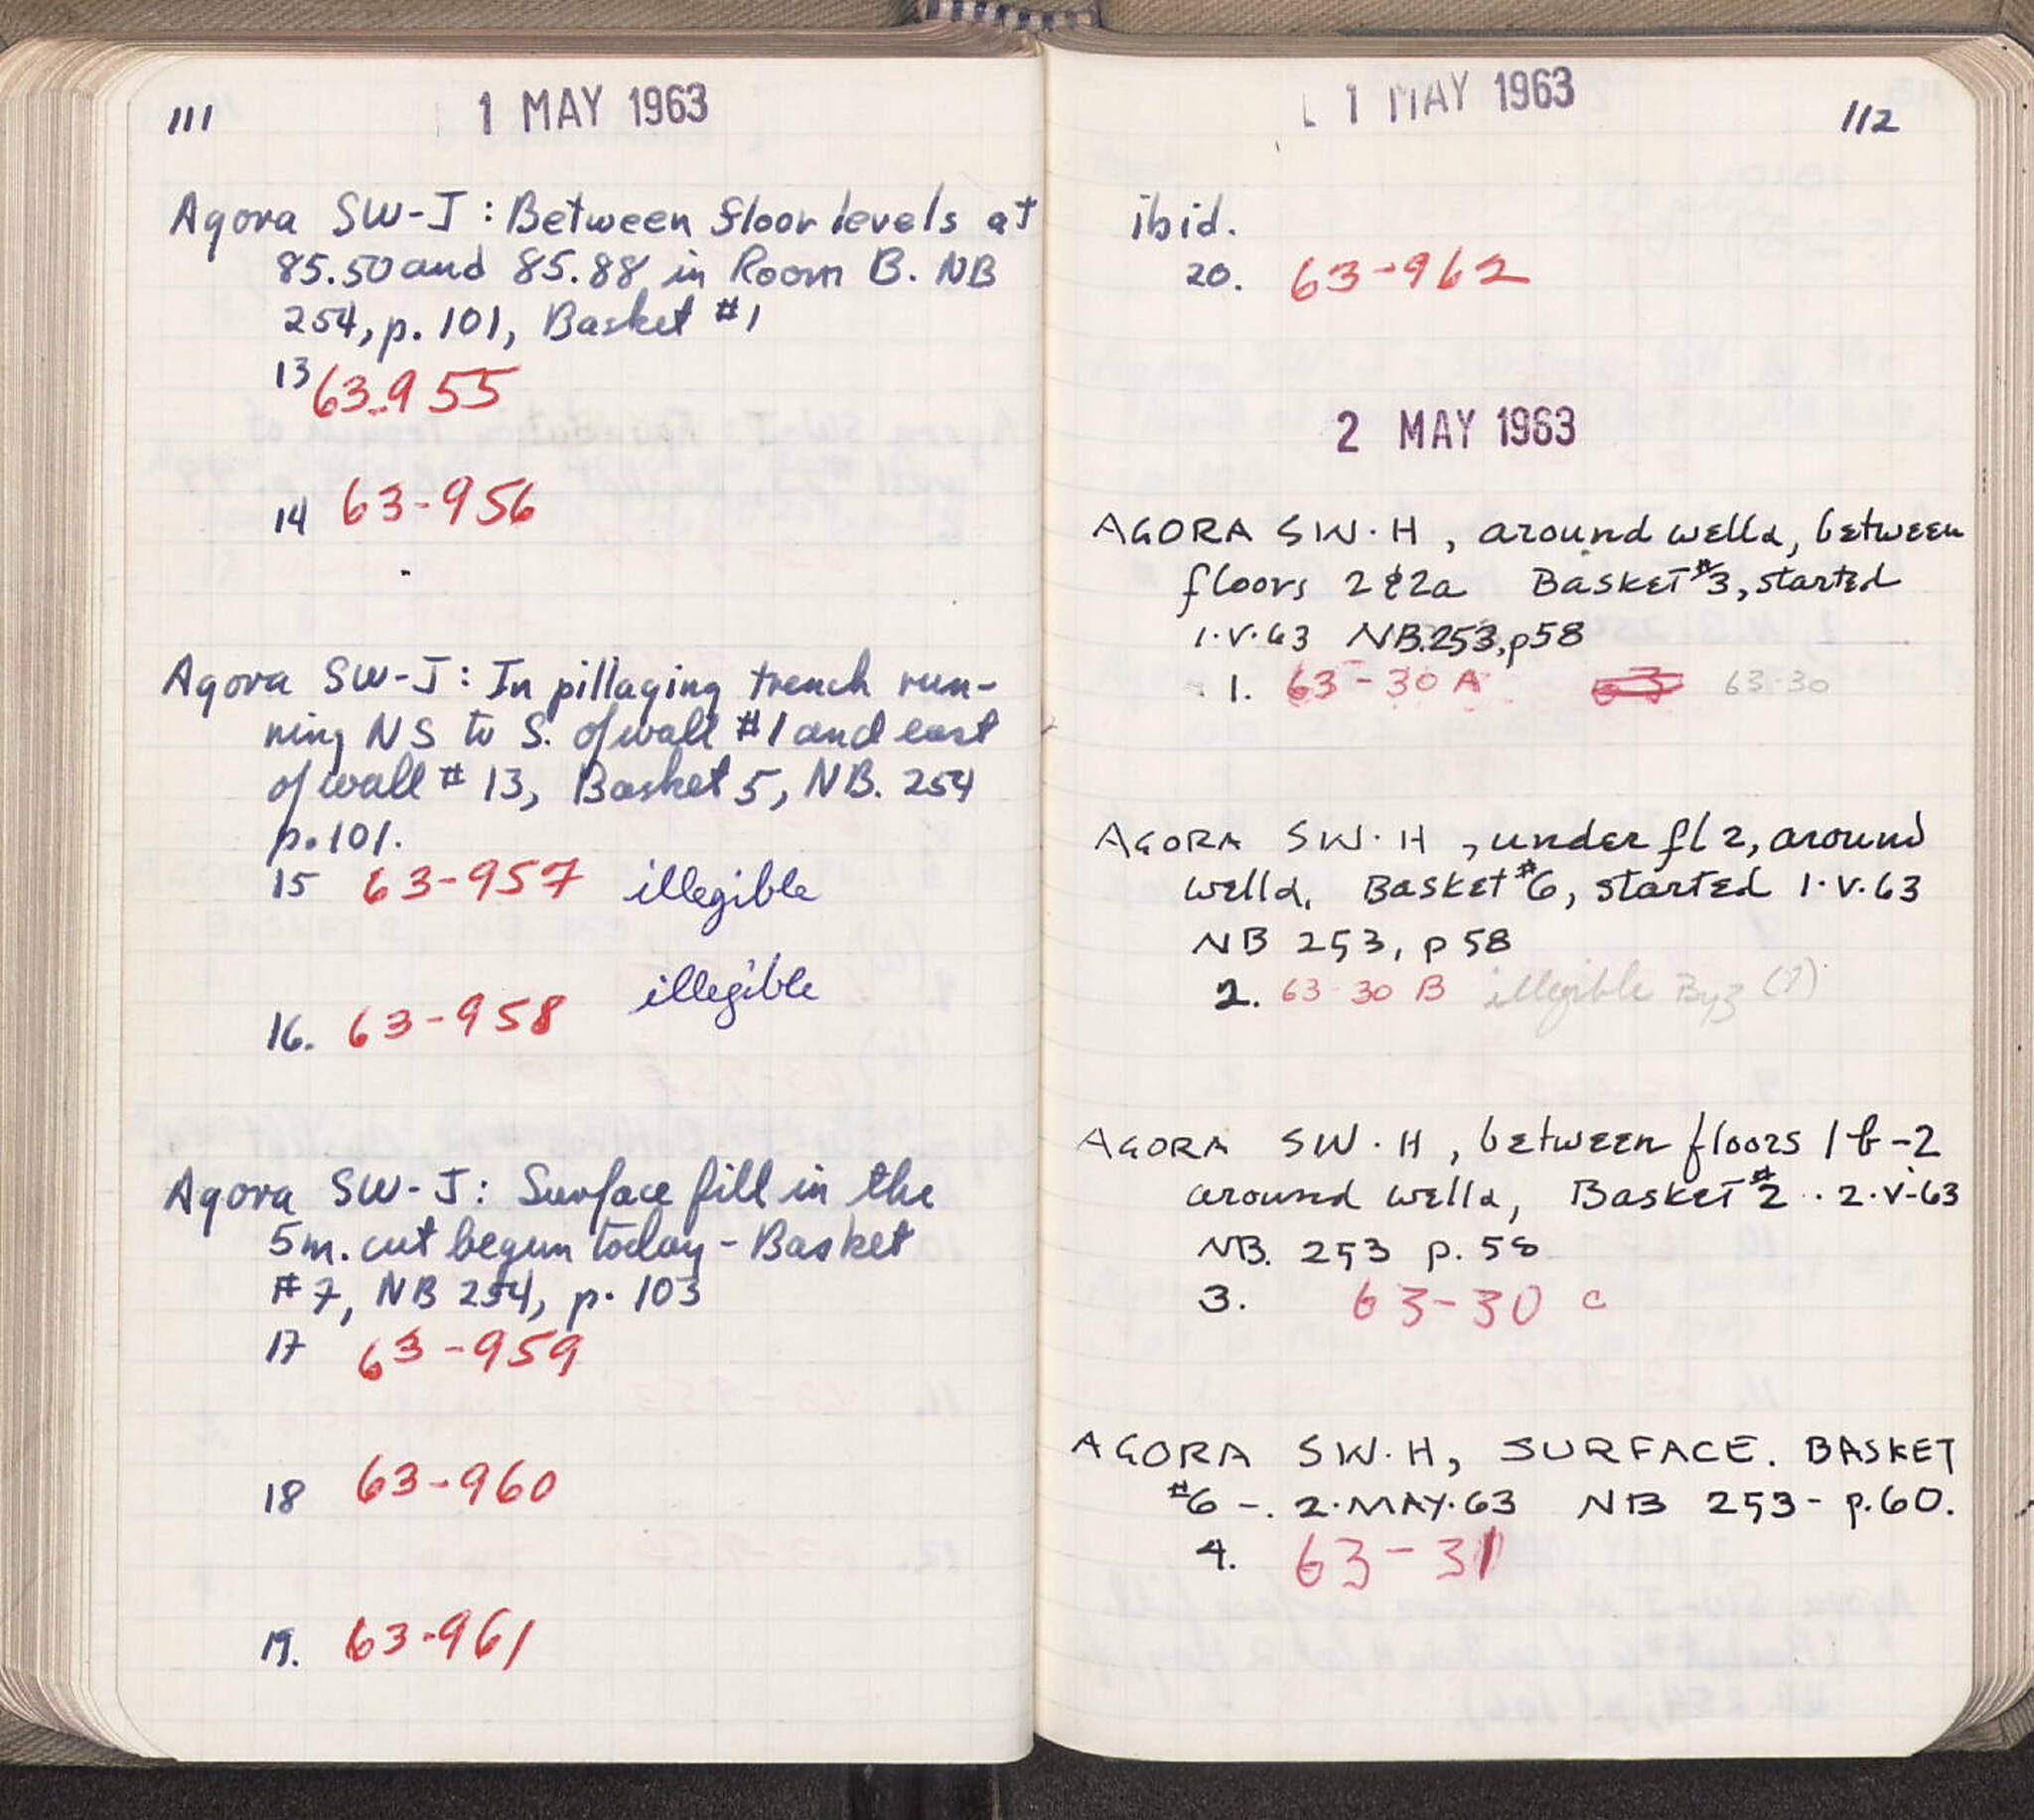 111
1 MAY 1963
Agora SW-J: Between floor levels at
85.50 and 85.88 in Room B. NB
254, p. 101, Basket #1
13 63-955
14 63-956
Agora SW-J: In pillaging trench run-
ning NS to S. of wall #1 and east
of wall # 13, Basket 5, NB. 254
p. 101.
15 63-957 illegible
16. 63-958 illegible
Agora SW-J: Surface fill in the
5m. cut begun today - Basket
#7, NB 254, p. 103
17 63-959
18 63-960
19. 63-961
1 MAY 1963
112
ibid.
20. 63-962
2 MAY 1963
AGORA SW·H, around wella, between
floors 2 & 2a Basket #3, started
1·V·63 NB.253, p58
1. 63-30 A 63 63-30
AGORA SW·H, under fl 2, around
wella, Basket #6, started 1·V·63
NB 253, p 58
2. 63-30 B illegible Byz (?)
AGORA SW·H, between floors 1b-2
around wella, Basket #2 . . 2·V·63
NB. 253 p. 58
3. 63-30 c
AGORA SW·H, SURFACE. BASKET
#6 -. 2·MAY·63 NB 253- p.60.
4. 63-31